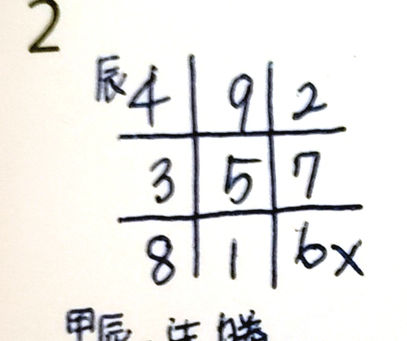 2
辰 4 9 2
3 5 7
8 1 6 x
甲辰